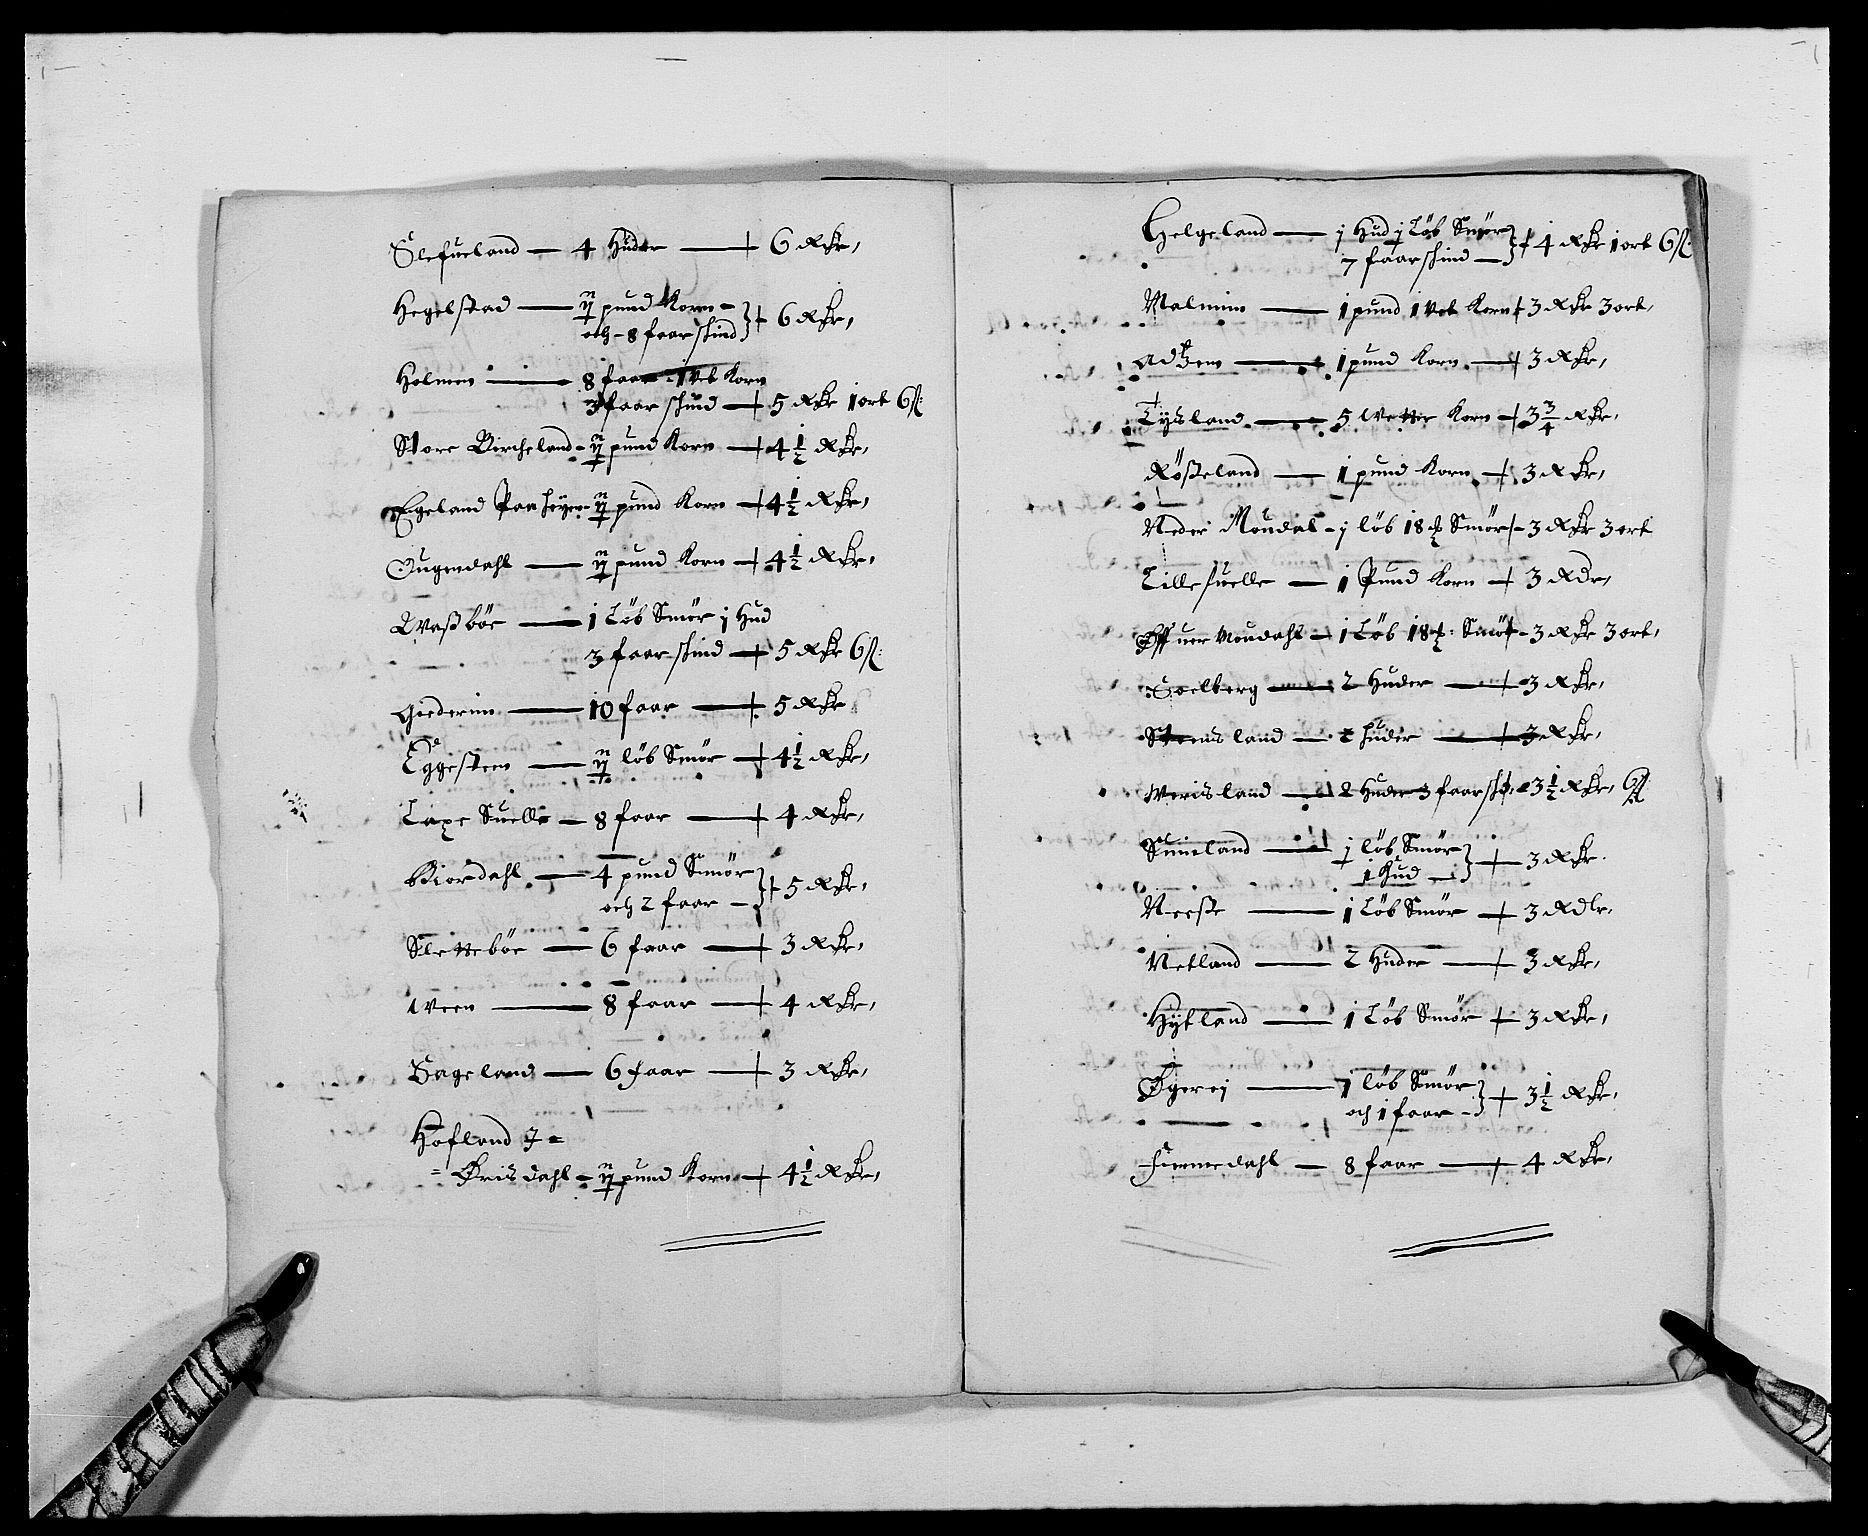 Slefueland — 4 Huder — 6 Rdr,
Hegelstad — pund Korn –
och – 8 faarskind 6 Rdr,
Holmen — 8 faar 1 Vet Korn
3 faar skind — 5 Rdr 1 ort 6 ß:
Store Bircheland – pund Korn — 4 1/2 Rdr,
Egeland Paa – pund Korn — 4 1/2 Rdr,
Ougendahl — pund Korn — 4 1/2 Rdr,
Wasbøe — 1 Løb Smør j Hud
3 faar skind — 5 Rdr 6 ß:
Giederim — 10 faar — 5 Rdr
Eggesteen — løb Smør — 4 1/2 Rdr,
Laxe Suelle — 8 faar — 4 Rdr,
Kiørdahl — 4 pund Smør
och 2 faar – 5 Rdr,
Slettebøe — 6 faar — 3 Rdr,
Ween — 8 faar — 4 Rdr,
Bageland — 6 faar — 3 Rdr,
Hofland J =
= Ørisdahl – pund Korn — 4 1/2 Rdr,
Helgeland — j Hud j Løb Smør
7 faarskind — 4 Rdr 1 ort 6 ß:
Malmim — 1 pund 1 Vet Korn 3 Rdr 3 ort,
— 1 pund Korn — 3 Rdr,
Tysland — 5 Wetter Korn — 3 3/4 Rdr,
Røsseland — 1 pund Korn — 3 Rdr,
Neder Moudal – j løb 18 Smør – 3 Rdr 3 ort
Lille suelle — 1 Pund Korn — 3 Rdr,
Øffuer Moudahl — 1 Løb 18 Smør – 3 Rdr 3 ort,
Soelberg — 2 Huder — 3 Rdr,
Steensland — 2 huder — 3 Rdr,
Werisland — 2 Huder 3 faarsk: 3 1/2 Rdr, 6 ß
Suneland — j løb Smør
1 Hud — 3 Rdr.
Neese — 1 Løb Smør — 3 Rdlr,
Netland — 2 Huder — 3 Rdr,
Hytland — 1 Løb Smør — 3 Rdr,
Øgerej — 1 løb Smør
och 1 faar – 3 1/2 Rdr,
— 8 faar — 4 Rdr,